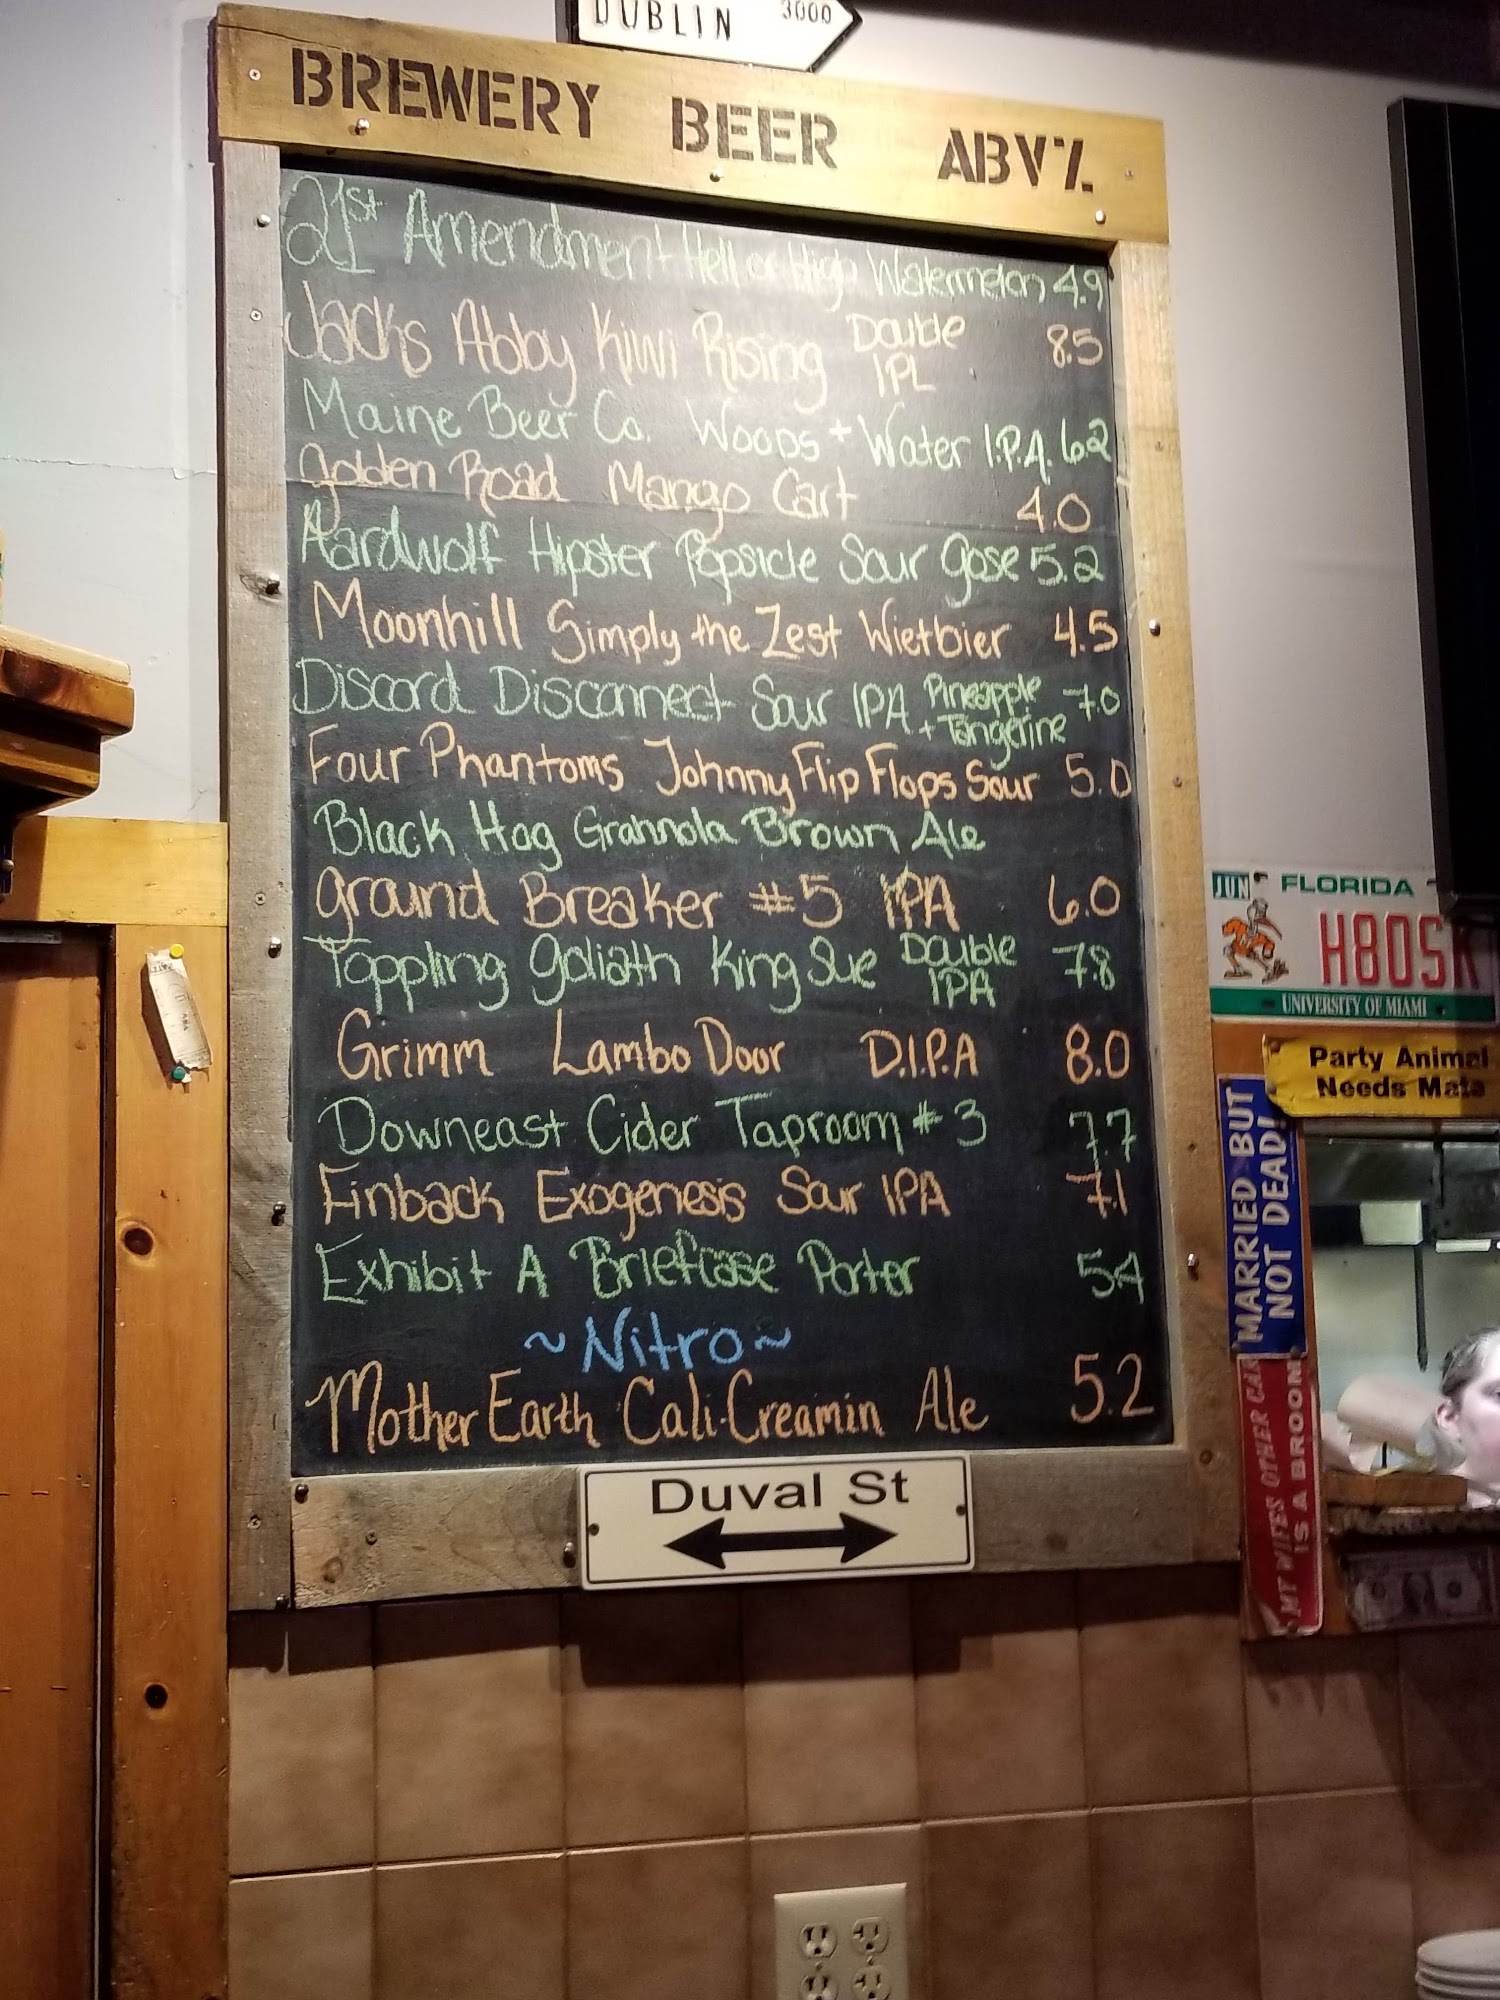 DUBLIN 3000
BREWERY BEER ABV%
21st Amendment Hell or High Watermelon 4.9
Jacks Abby Kiwi Rising Double IPL 8.5
Maine Beer Co. Woods + Water I.P.A. 6.2
Golden Road Mango Cart 4.0
Aardwolf Hipster Popsicle Sour Gose 5.2
Moonhill Simply the Zest Wietbier 4.5
Discord Disconnect Sour IPA Pineapple + Tangerine 7.0
Four Phantoms Johnny Flip Flops Sour 5.0
Black Hog Grahnola Brown Ale
Ground Breaker #5 IPA 6.0
Toppling Goliath King Sue Double IPA 7.8
Grimm Lambo Door D.I.P.A 8.0
Downeast Cider Taproom #3 7.7
Finback Exogenesis Sour IPA 7.1
Exhibit A Briefcase Porter 5.4
~Nitro~
Mother Earth Cali-Creamin Ale 5.2
Duval St
JUN FLORIDA
H80S
UNIVERSITY OF MIAMI
Party Animal
Needs Mate
MARRIED BUT
NOT DEAD!
MY WIFES OTHER CAR
IS A BROOM